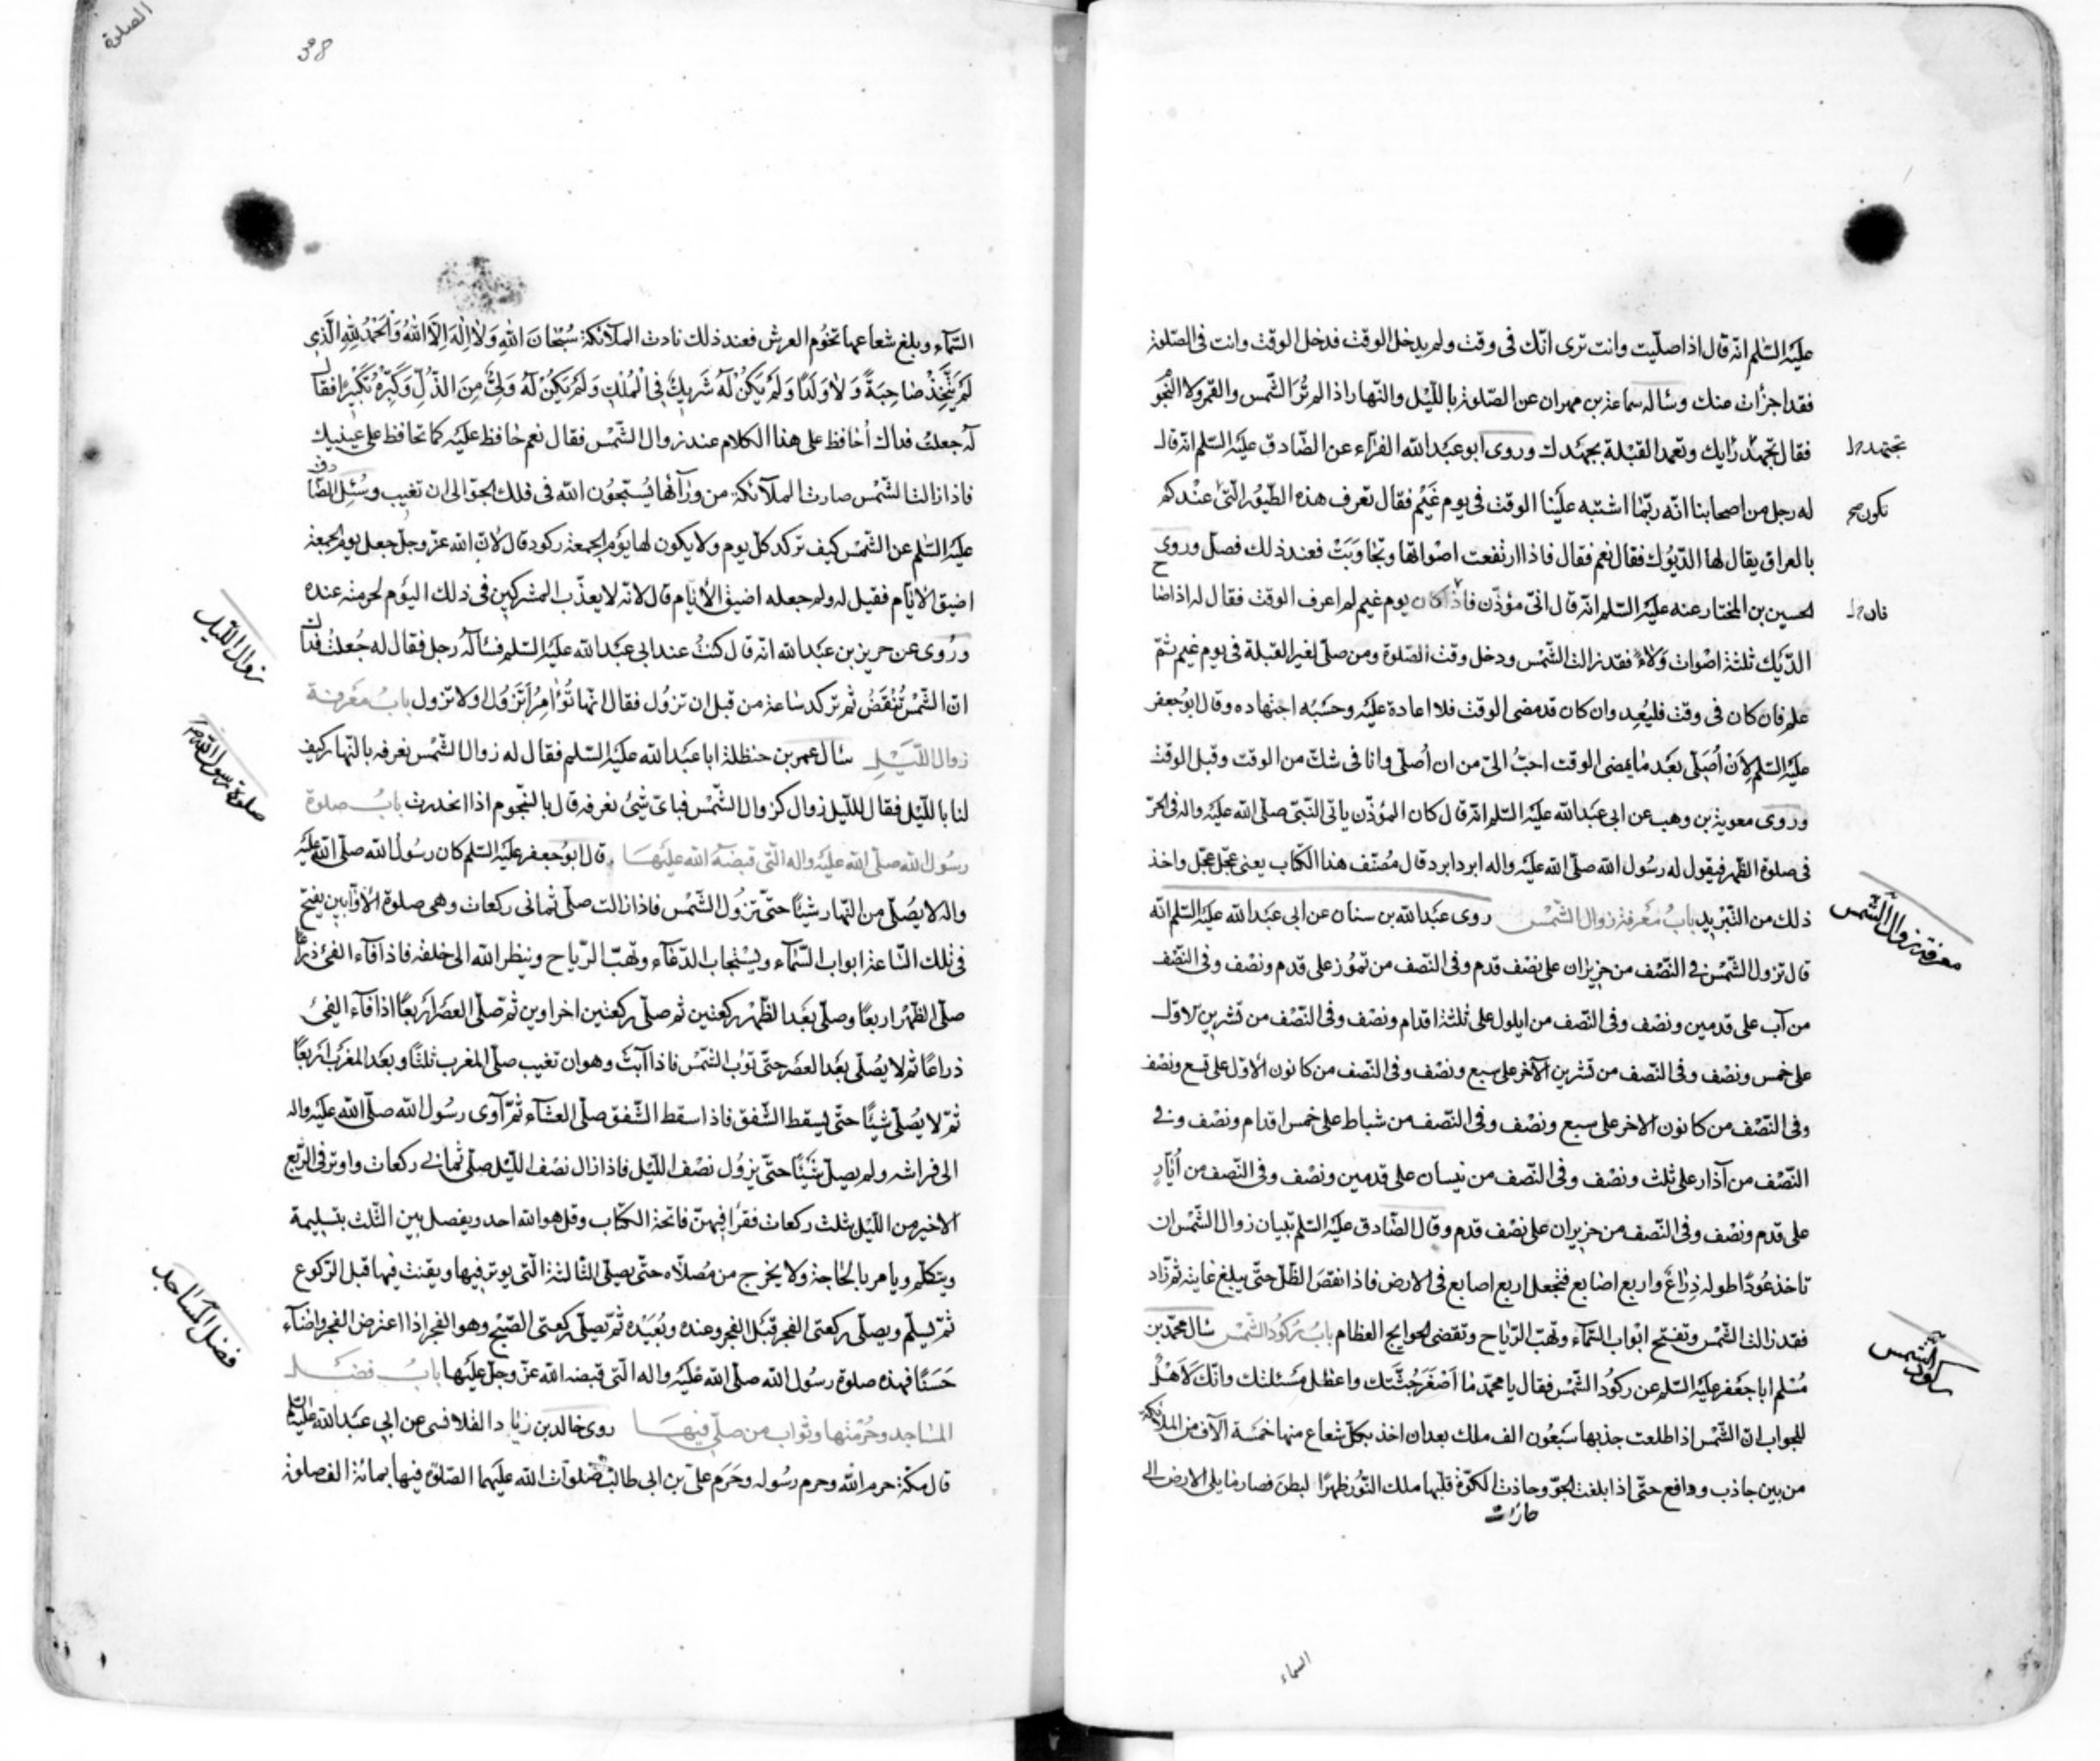 عليه السّلم انّه قال اذا صلّيت وانت ترى انّك فى وقت ولم يدخل الوقت فدخل الوقت وانت فى الصّلوة
فقد اجزأت منك وسأله سماعة بن مهران عن الصّلوة بالليل والنّهار اذا لم تُرَ الشّمس والقمر ولا النّجوم
فقال تجهد رأيك وتعمد القبلة بجهدك وروى ابو عبد الله الفرّاء عن الصّادق عليه السّلم انّه قال
تجتهد خ‌ل
له رجل من اصحابنا انّه ربّما اشتبه علينا الوقت فى يوم غيم فقال تعرف هذه الطّيور الّتى عندكم
تكون صح
بالعراق يقال لها الدّيوك فقال نعم فقال فاذا ارتفعت اصواتها وتجاوبت فعند ذلك فصلّ وروى
الحسين بن المختار عنه عليه السّلم انّه قال انّى مؤذّن فاذا كان يوم غيم لم اعرف الوقت فقال له اذا صاح
فان خ‌ل
الدّيك ثلثة اصوات ولاءً فقد زالت الشّمس ودخل وقت الصّلوة ومن صلّى لغير القبلة فى يوم غيم ثمّ
علم فان كان فى وقت فليُعِد وان كان قد مضى الوقت فلا اعادة عليه وحَسْبُه اجتهاده وقال ابو جعفر
عليه السّلم لِاَنْ اُصَلّى بعد ما يمضى الوقت احبّ الىّ من ان اُصلّى وانا فى شكّ من الوقت وقبل الوقت
وروى معوية بن وهب عن ابى عبد الله عليه السّلم انّه قال كان المؤذّن ياتى النّبىّ صلّى الله عليه واله فى الحرّ
فى صلوة الظّهر فيقول له رسول الله صلّى الله عليه واله ابرد ابرد قال مُصنّف هذا الكتاب يعنى عجّل عجّل واخذ
ذلك من التّبريد بابُ معرفة زوال الشّمس روى عبد الله بن سنان عن ابى عبد الله عليه السّلم انّه
معرفة زوال الشّمس
قال تزول الشّمس فى النّصف من حزيران على نصف قدم وفى النّصف من تموز على قدم ونصف وفى النّصف
من آب على قدمين ونصف وفى النّصف من ايلول على ثلثة اقدام ونصف وفى النّصف من تشرين الاوّل
على خمس ونصف وفى النّصف من تشرين الآخر على سبع ونصف وفى النّصف من كانون الاوّل على تسع ونصف
وفى النّصف من كانون الاخر على سبع ونصف وفى النّصف من شباط على خمس اقدام ونصف وفى
النّصف من آذار على ثلث ونصف وفى النّصف من نيسان على قدمين ونصف وفى النّصف من اُيّار
على قدم ونصف وفى النّصف من حزيران على نصف قدم وقال الصّادق عليه السّلم تبيان زوال الشّمس ان
تاخذ عُودًا طوله ذِراعٌ واربع اصابع فتجعل اربع اصابع فى الارض فاذا نقصَ الظّلّ حتّى يبلغ غايته ثم زاد
فقد زالت الشّمس وتفتح ابواب السّماء وتهبّ الرّياح وتقضى الحوايج العظام بابُ رُكُود الشّمس سأل محمّد بن
ركود الشّمس
مُسْلم ابا جعفر عليه السّلم عن ركود الشّمس فقال يا محمّد ما اَصْغَرَ جُثَّتك واعظل مسئلتك وانّك لَاَهْلٌ
للجواب انّ الشّمس اذا طلعت جذبها سَبْعُون الف ملك بعد ان اخذ بكلّ شعاع منها خمسة آلاف من الملائكة
من بين جاذب ودافع حتّى اذا بلغت الجوّ وحاذت الكوّة قلّبها ملك النّور ظهرًا لبطن فصار ما يلى الارض الى
جازت
السماء
الصلوة
38
السّماء وبلغ شعاعها تخُوم العرش فعند ذلك نادت الملآئكة سُبْحَانَ اللهِ وَلا اِلٰهَ اِلَّا اللهُ وَالْحَمْدُ لِلّٰهِ الَّذى
لَمْ يَتَّخِذْ صَاحِبَةً وَلا وَلَدًا وَلَمْ يَكُنْ لَهُ شَرِيكٌ فِى الْمُلْكِ وَلَمْ يَكُنْ لَهُ وَلِىٌّ مِنَ الذُّلِّ وَكَبِّرْهُ تَكْبِيرًا فقال
له جعلتُ فداك اُحافظ على هذا الكلام عند زوال الشّمس فقال نعم حافظ عليه كما تحافظ على عينيك
فاذا زالت الشّمس صارت الملآئكة من ورآئها يُسبّحون الله فى فلك الجوّ الى ان تغيب وسُئِل الصّادق
عليه السّلم عن الشّمس كيف تركد كلّ يوم ولا يكون لها يوم الجمعة ركود قال لانّ الله عزّ وجلّ جعل يوم الجمعة
اضيق الايّام فقيل له ولم جعله اضيق الايّام قال لانّه لا يعذّب المشركين فى ذلك اليوم لحرمته عنده
زوال اللّيل
ورُوى عن حريز بن عبد الله انّه قال كنتُ عند ابى عبد الله عليه السّلم فسأله رجل فقال له جُعلتُ فداك
انّ الشّمس تُنْقَضُ ثم تركد ساعة من قبل ان تزول فقال انّها تُؤامِرُ اَتَزُولُ اولا تزول بابُ معرفة
زوال اللّيل سأل عمر بن حنظلة ابا عبد الله عليه السّلم فقال له زوال الشّمس نعرفه بالنّهار كيف
صلوة رسول الله ص
لنا بالليل فقال للّيل زوال كزوال الشّمس فباىّ شىء نعرفه قال بالنّجوم اذا انحدرت بابُ صلوة
رسول الله صلّى الله عليه واله الّتى قبضه الله عليها قال ابو جعفر عليه السّلم كان رسول الله صلّى الله عليه
واله لا يُصلّى من النّهار شيئًا حتّى تزول الشّمس فاذا زالت صلّى ثمانى ركعات وهى صلوة الاوّابين يفتح
فى تلك السّاعة ابواب السّماء ويستجاب الدّعاء وتهبّ الرّياح وينظر الله الى خلقه فاذا فآء الفىء ذراعًا
صلّى الظّهر اربعًا وصلّى بعد الظّهر ركعتين ثم صلّى ركعتين اخراوين ثم صلّى العصر اربعًا اذا فآء الفىء
ذراعًا ثم لا يُصلّى بعد العصر حتّى تؤب الشّمس فاذا آبت وهو ان تغيب صلّى المغرب ثلثًا وبعد المغرب اربعًا
ثمّ لا يُصلّى شيئًا حتّى يسقط الشّفق فاذا سقط الشّفق صلّى العشآء ثمّ آوى رسول الله صلّى الله عليه واله
الى فراشه ولم يصلّ شيئًا حتّى يزول نصف اللّيل فاذا زال نصف اللّيل صلّى ثمانى ركعات واوتر فى الرّبع
الاخير من اللّيل بثلث ركعات فقرأ فيهنّ فاتحة الكتاب وقل هو الله احد ويفصل بين الثّلث بتسليمة
ويتكلّم ويامر بالحاجة ولا يخرج من مُصلّاه حتّى يصلّى الثالثة الّتى يوتر فيها ويقنت فيها قبل الرّكوع
ثمّ يُسلّم ويصلّى ركعتى الفجر قبل الفجر وعنده وبُعَيْده ثمّ يصلّى ركعتى الصّبح وهو الفجر اذا اعترض الفجر واضآء
فضل المساجد
حَسَنًا فهذه صلوة رسول الله صلّى الله عليه واله الّتى قبضه الله عزّ وجلّ عليها بابُ فضل
المساجد وحُرْمتها وثواب من صلّى فيها روى خالد بن زياد القلانسى عن ابى عبد الله عليه السّلم
قال مكّة حرم الله وحرم رسوله وحَرَم علىّ بن ابى طالب صلوات الله عليهما الصّلوة فيها بمائة الف صلوة